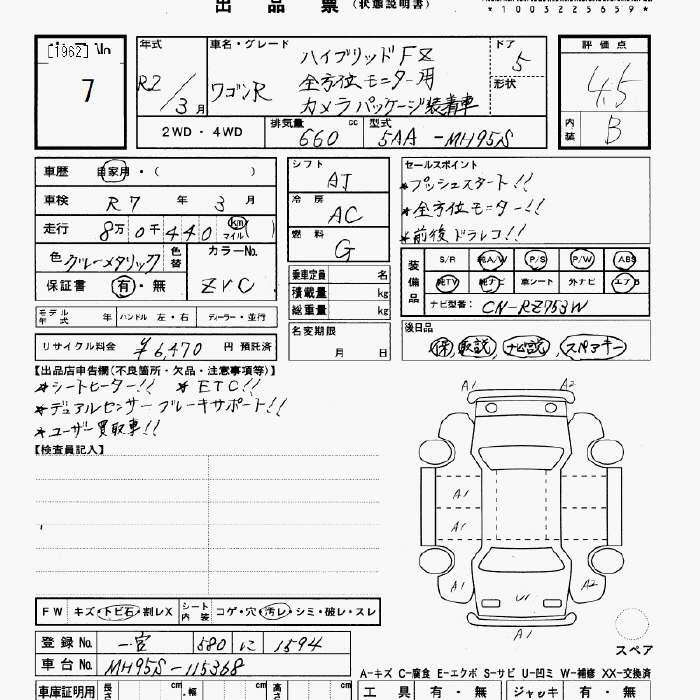 出品票(状態説明書)
*1003225659*
[1962] No
7
年式
R2/3月
車名・グレード
ハイブリッドFZ
ワゴンR
全方位モニター用
カメラパッケージ装着車
ドア
5
形状
評価点
4.5
内装
B
2WD・4WD
排気量
660 cc
型式
5AA-MH95S
車歴 自家用・( )
車検 R7年3月
走行 8万0千440 km マイル
色 グレーメタリック
色替
カラーNo.
ZVC
保証書 有・無
モデル年式 年
ハンドル 左・右
ディーラー・並行
リサイクル料金 ¥6,470 円預託済
シフト
AT
冷房
AC
燃料
G
乗車定員 名
積載量 kg
総重量 kg
名変期限
月 日
セールスポイント
*プッシュスタート!!
*全方位モニター!!
*前後ドラレコ!!
装備品
S/R 純A/W P/S P/W ABS
純TV 純ナビ 革シート 外ナビ エアB
ナビ型番: CN-RZ753W
後日品
保, 取説, ナビ説, スペアキー
【出品店申告欄(不良箇所・欠品・注意事項等)】
*シートヒーター!! *ETC!!
*デュアルセンサーブレーキサポート!!
*ユーザー買取車!!
【検査員記入】
A1 A2
A1
A1
A1 U1 A2
A1
スペア
FW キズ・トビ石・割レX
シート内装 コゲ・穴・汚レ・シミ・破レ・スレ
登録No. 一宮 580 に 1594
車台No. MH95S-115368
A−キズ C−腐食 E−エクボ S−サビ U−凹ミ W−補修 XX−交換済
車庫証明用 長さ cm 幅 cm 高さ cm
工具 有・無 ジャッキ 有・無